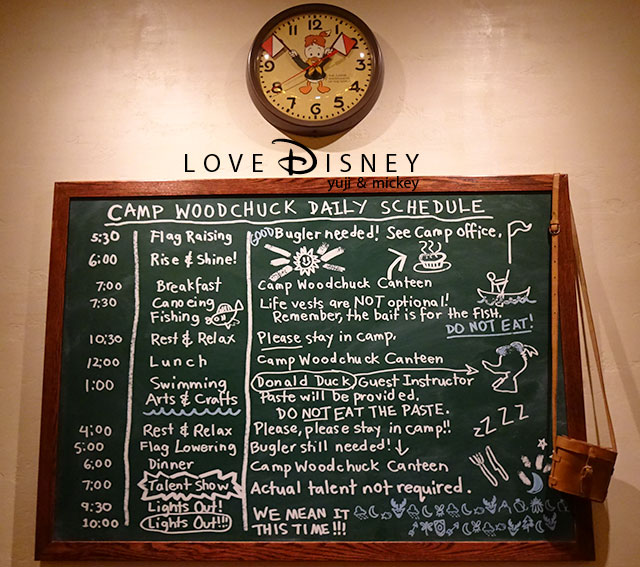 11 12 1
10 2
9 3
8 4
7 6 5
LOVE DISNEY
yuji & mickey
CAMP WOODCHUCK DAILY SCHEDULE
5:30 Flag Raising GOOD Bugler needed! See Camp office.
6:00 Rise & Shine!
7:00 Breakfast Camp Woodchuck Canteen
7:30 Canoeing Life vests are NOT optional!
Fishing Remember, the bait is for the fish.
DO NOT EAT!
10:30 Rest & Relax Please stay in camp.
12:00 Lunch Camp Woodchuck Canteen
1:00 Swimming Donald Duck Guest Instructor
Arts & Crafts Paste will be provided.
DO NOT EAT THE PASTE.
4:00 Rest & Relax Please, please stay in camp!!
zZZZ
5:00 Flag Lowering Bugler still needed!
6:00 Dinner Camp Woodchuck Canteen
7:00 Talent Show Actual talent not required.
9:30 Lights Out! WE MEAN IT
10:00 Lights Out!!! THIS TIME!!!